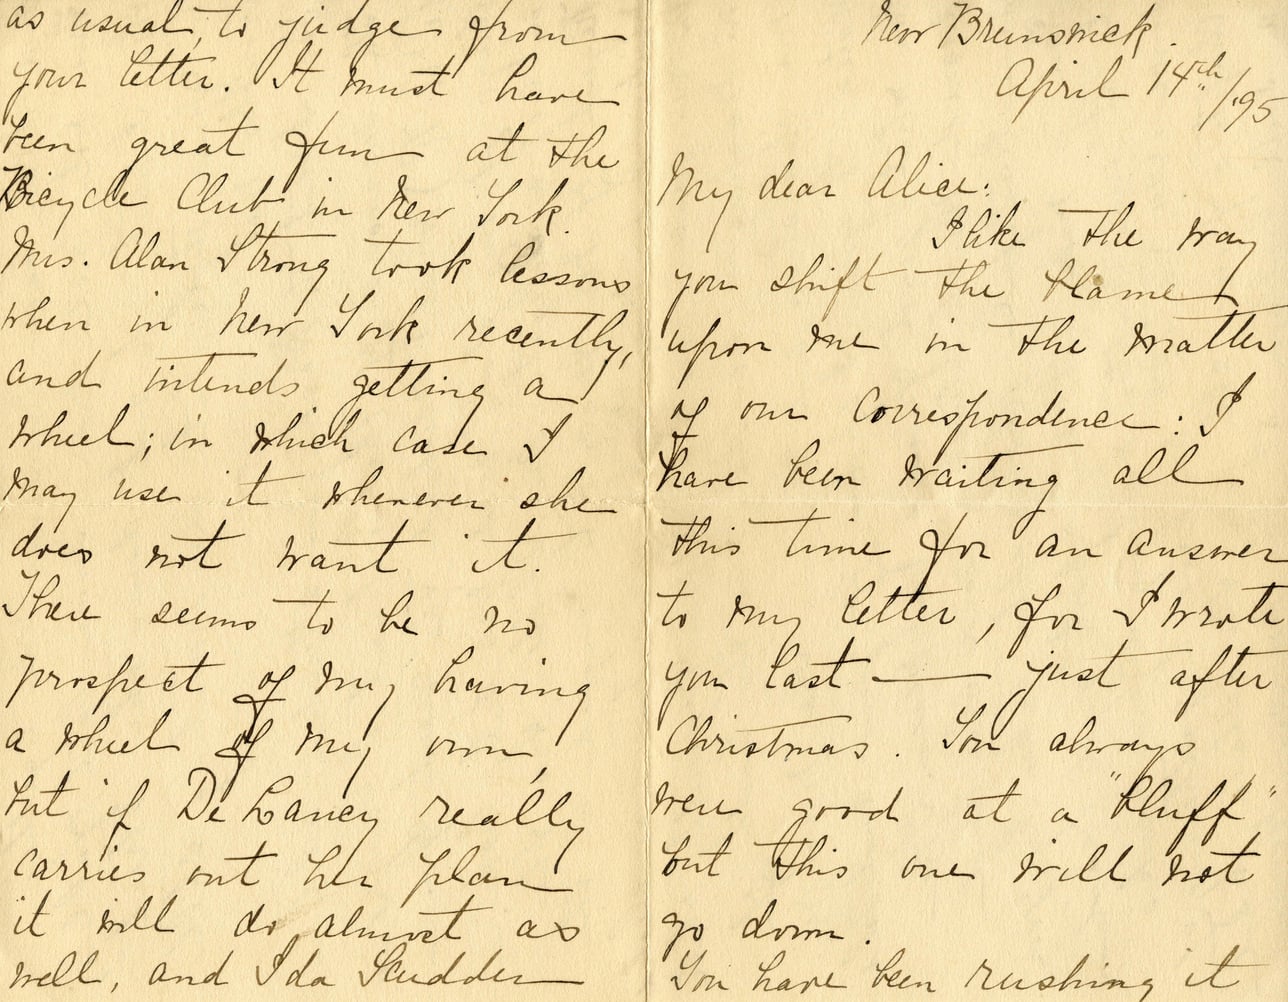 New Brunswick.
April 14th/95
My dear Alice:
I like the way
you shift the blame
upon me in the matter
of our correspondence: I
have been waiting all
this time for an answer
to my letter, for I wrote
you last — just after
Christmas. You always
were good at a "bluff"
but this one will not
go down.
You have been rushing it
as usual, to judge from
your letter. It must have
been great fun at the
Bicycle Club in New York.
Mrs. Alan Strong took lessons
when in New York recently,
and intends getting a
wheel; in which case I
may use it whenever she
does not want it.
There seems to be no
prospect of my having
a wheel of my own,
but if De Lancey really
carries out her plan
it will do almost as
well, and Ida Scudder